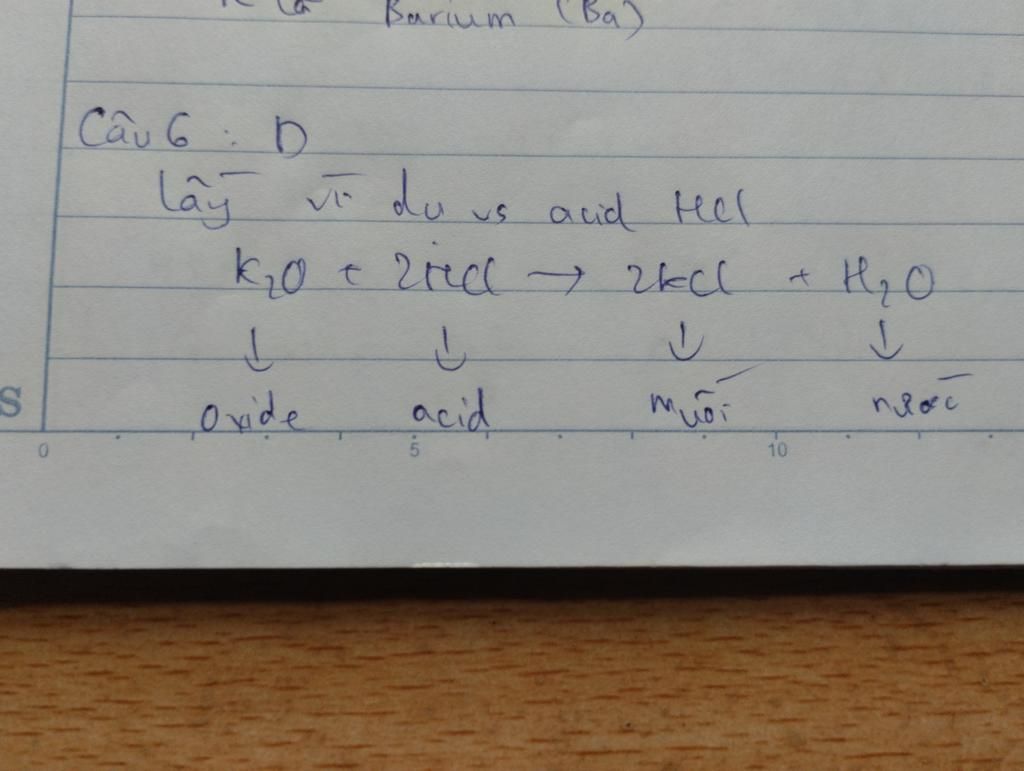 là Barium (Ba)
Câu 6 : D
Lấy ví dụ vs acid HCl
K₂O + 2HCl → 2KCl + H₂O
↓ ↓ ↓ ↓
oxide acid muối nước
S
0 5 10